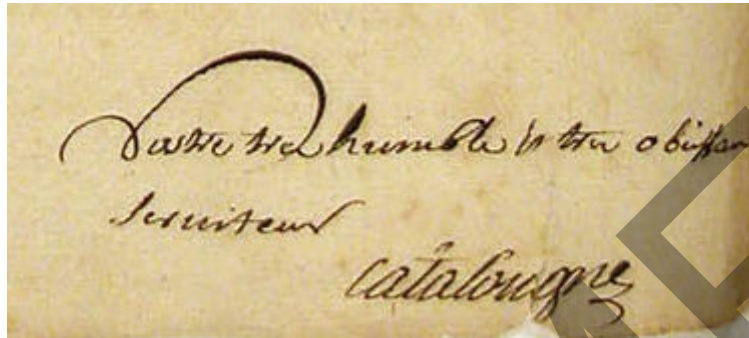 Vostre tres humble et tres obeissan
seruiteur
Catalougne